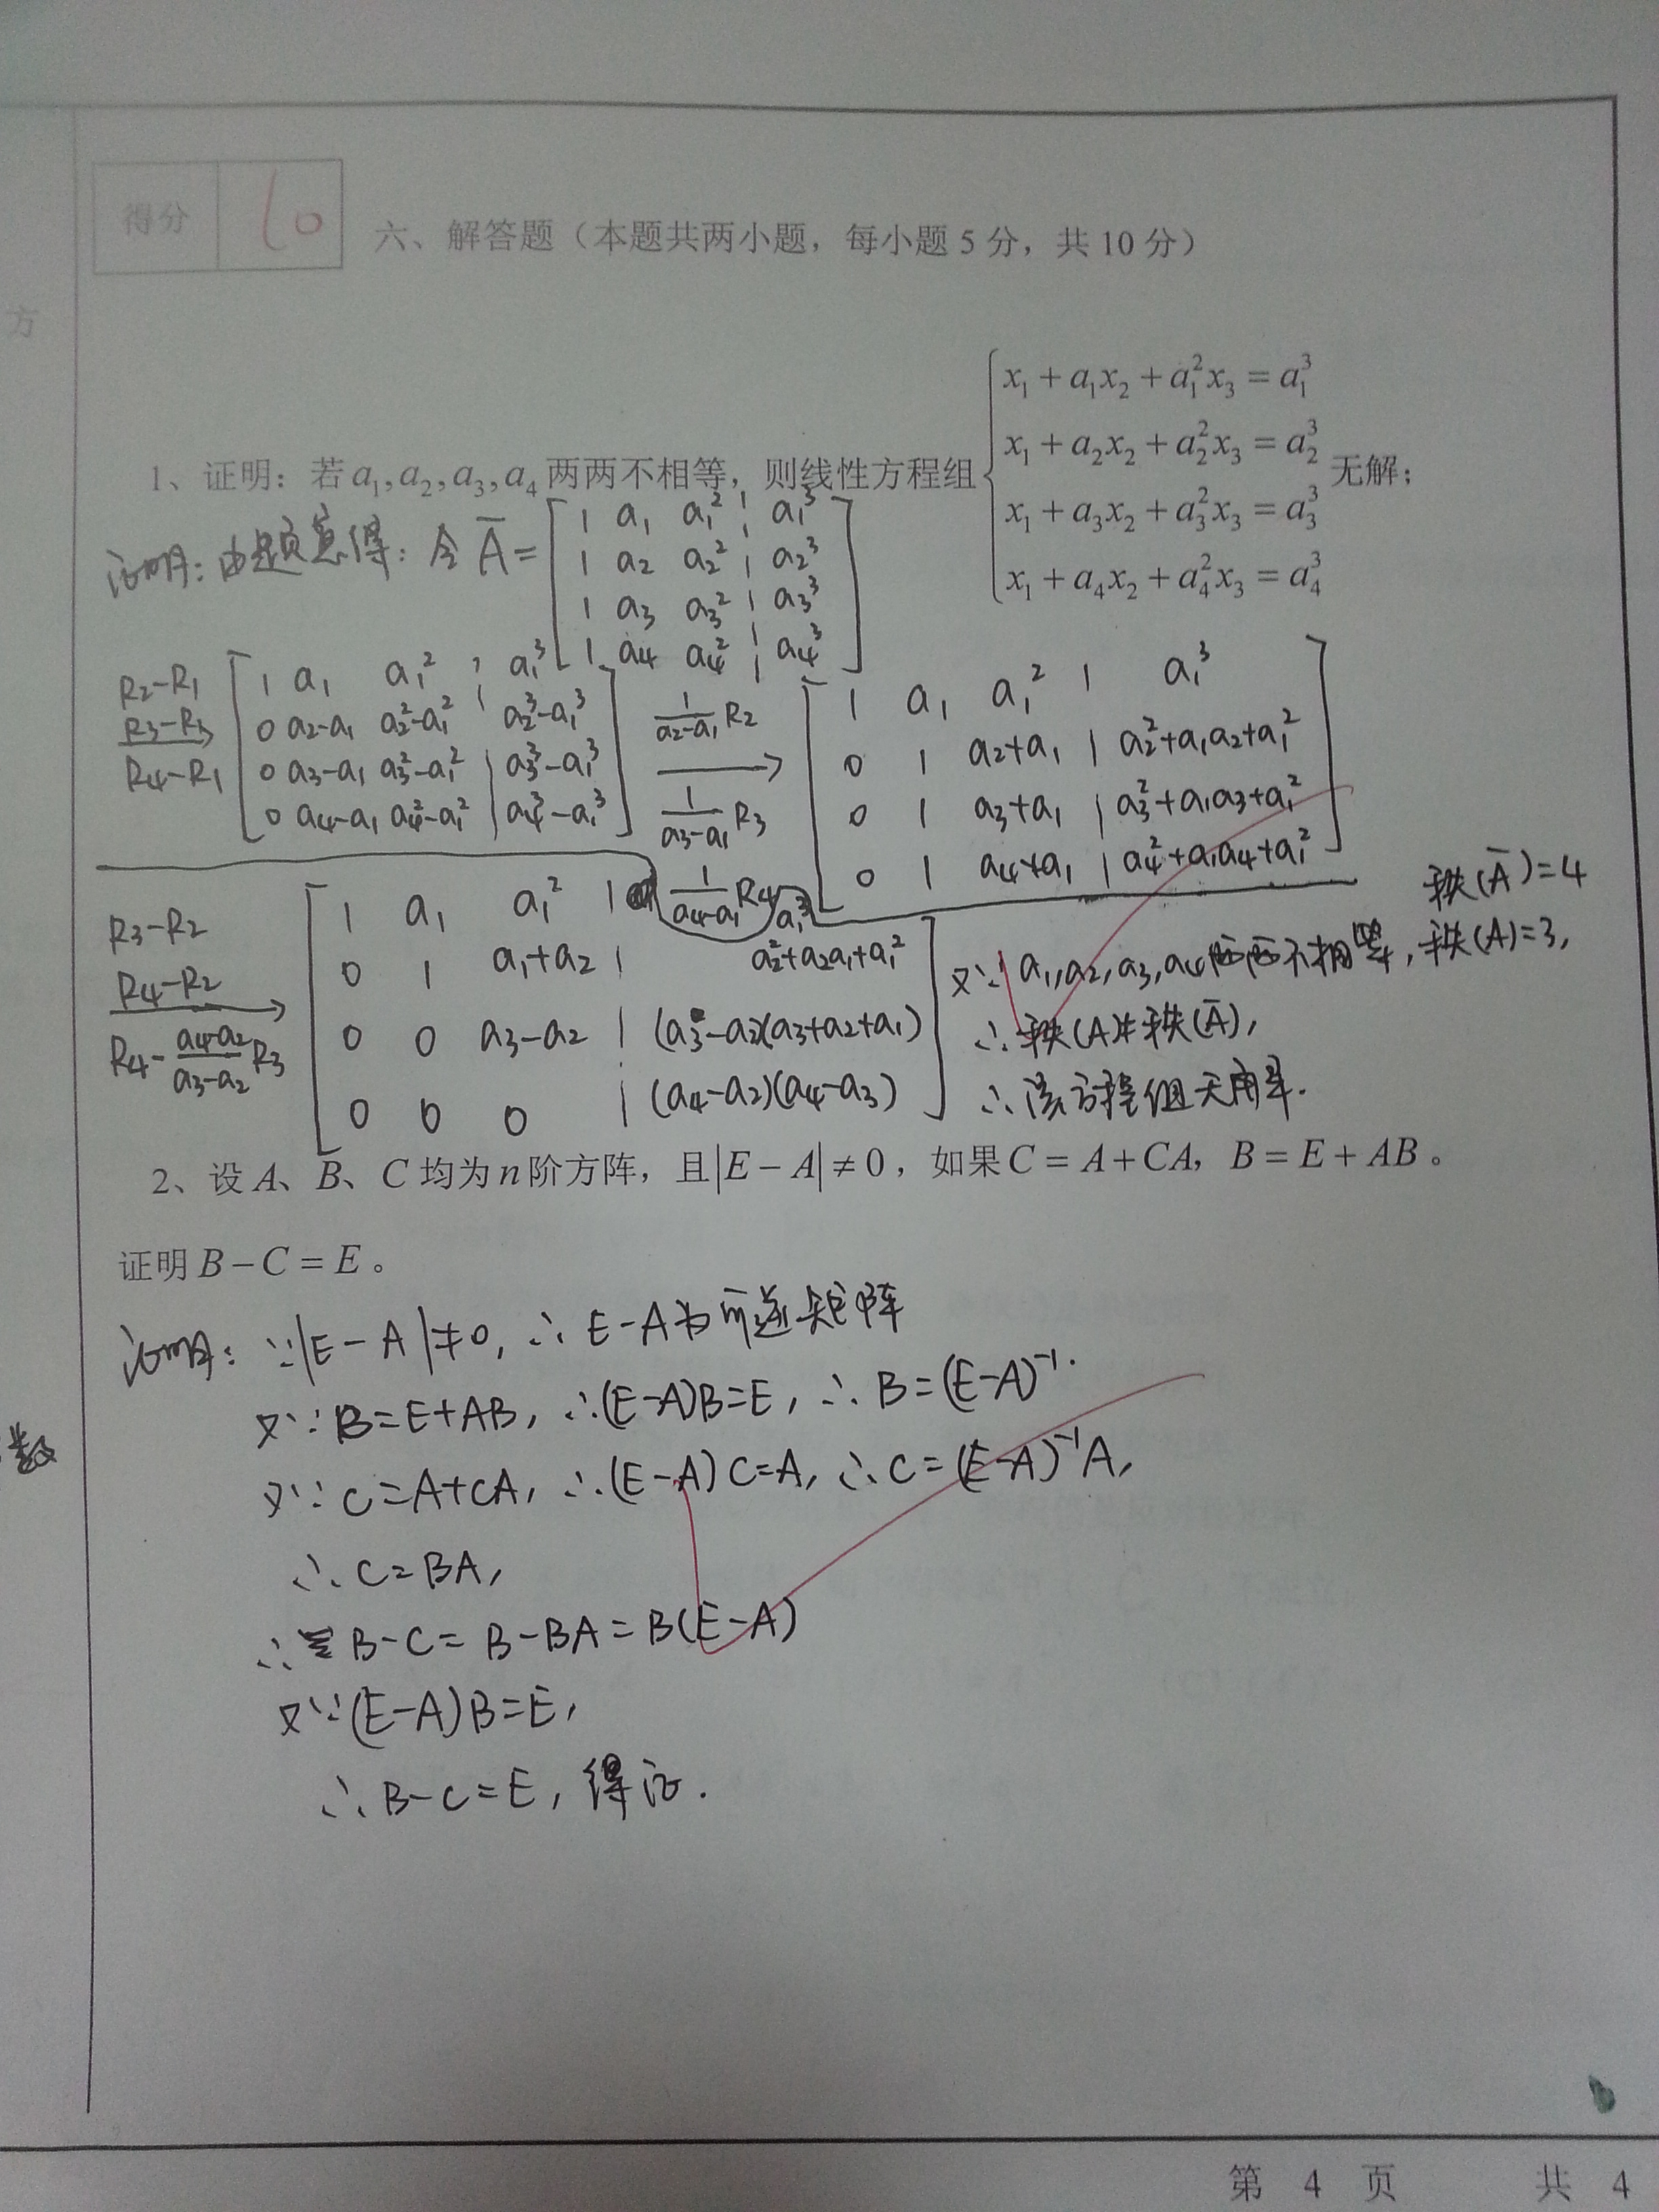 得分 10
六、解答题（本题共两小题，每小题 5 分，共 10 分）
方
x₁ + a₁x₂ + a₁²x₃ = a₁³
x₁ + a₂x₂ + a₂²x₃ = a₂³
1、证明：若 a₁, a₂, a₃, a₄ 两两不相等，则线性方程组 无解；
x₁ + a₃x₂ + a₃²x₃ = a₃³
x₁ + a₄x₂ + a₄²x₃ = a₄³
证明：由题意得：令 Ā =
1 a₁ a₁² | a₁³
1 a₂ a₂² | a₂³
1 a₃ a₃² | a₃³
1 a₄ a₄² | a₄³
R2-R1
R3-R3
R4-R1
1 a₁ a₁² | a₁³
0 a₂-a₁ a₂²-a₁² | a₂³-a₁³
0 a₃-a₁ a₃²-a₁² | a₃³-a₁³
0 a₄-a₁ a₄²-a₁² | a₄³-a₁³
1/(a₂-a₁) R2
1/(a₃-a₁) R3
1/(a₄-a₁) R4
1 a₁ a₁² | a₁³
0 1 a₂+a₁ | a₂²+a₁a₂+a₁²
0 1 a₃+a₁ | a₃²+a₁a₃+a₁²
0 1 a₄+a₁ | a₄²+a₁a₄+a₁²
R3-R2
R4-R2
R4-(a₄-a₂)/(a₃-a₂) R3
1 a₁ a₁² | a₁³
0 1 a₁+a₂ | a₂²+a₂a₁+a₁²
0 0 a₃-a₂ | (a₃-a₂)(a₃+a₂+a₁)
0 0 0 | (a₄-a₂)(a₄-a₃)
秩(Ā)=4
又∵ a₁,a₂,a₃,a₄两两不相等，秩(A)=3,
∴ 秩(A)≠秩(Ā),
∴ 该方程组无解.
2、设 A、B、C 均为 n 阶方阵，且|E − A| ≠ 0，如果 C = A + CA, B = E + AB 。
证明 B − C = E 。
证明：∵|E-A|≠0, ∴ E-A为可逆矩阵
又∵ B=E+AB, ∴(E-A)B=E, ∴ B=(E-A)⁻¹.
数
又∵ C=A+CA, ∴(E-A)C=A, ∴C=(E-A)⁻¹A,
∴ C=BA,
∴ B-C= B-BA=B(E-A)
又∵(E-A)B=E,
∴ B-C=E, 得证.
第 4 页 共 4